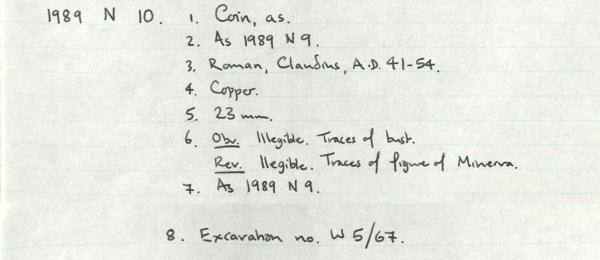 1989 N 10. 1. Coin, as.
2. As 1989 N 9.
3. Roman, Claudius, A.D. 41-54.
4. Copper.
5. 23 mm.
6. Obv. Illegible. Traces of bust.
Rev. Illegible. Traces of figure of Minerva.
7. As 1989 N 9.
8. Excavation no. W 5/67.